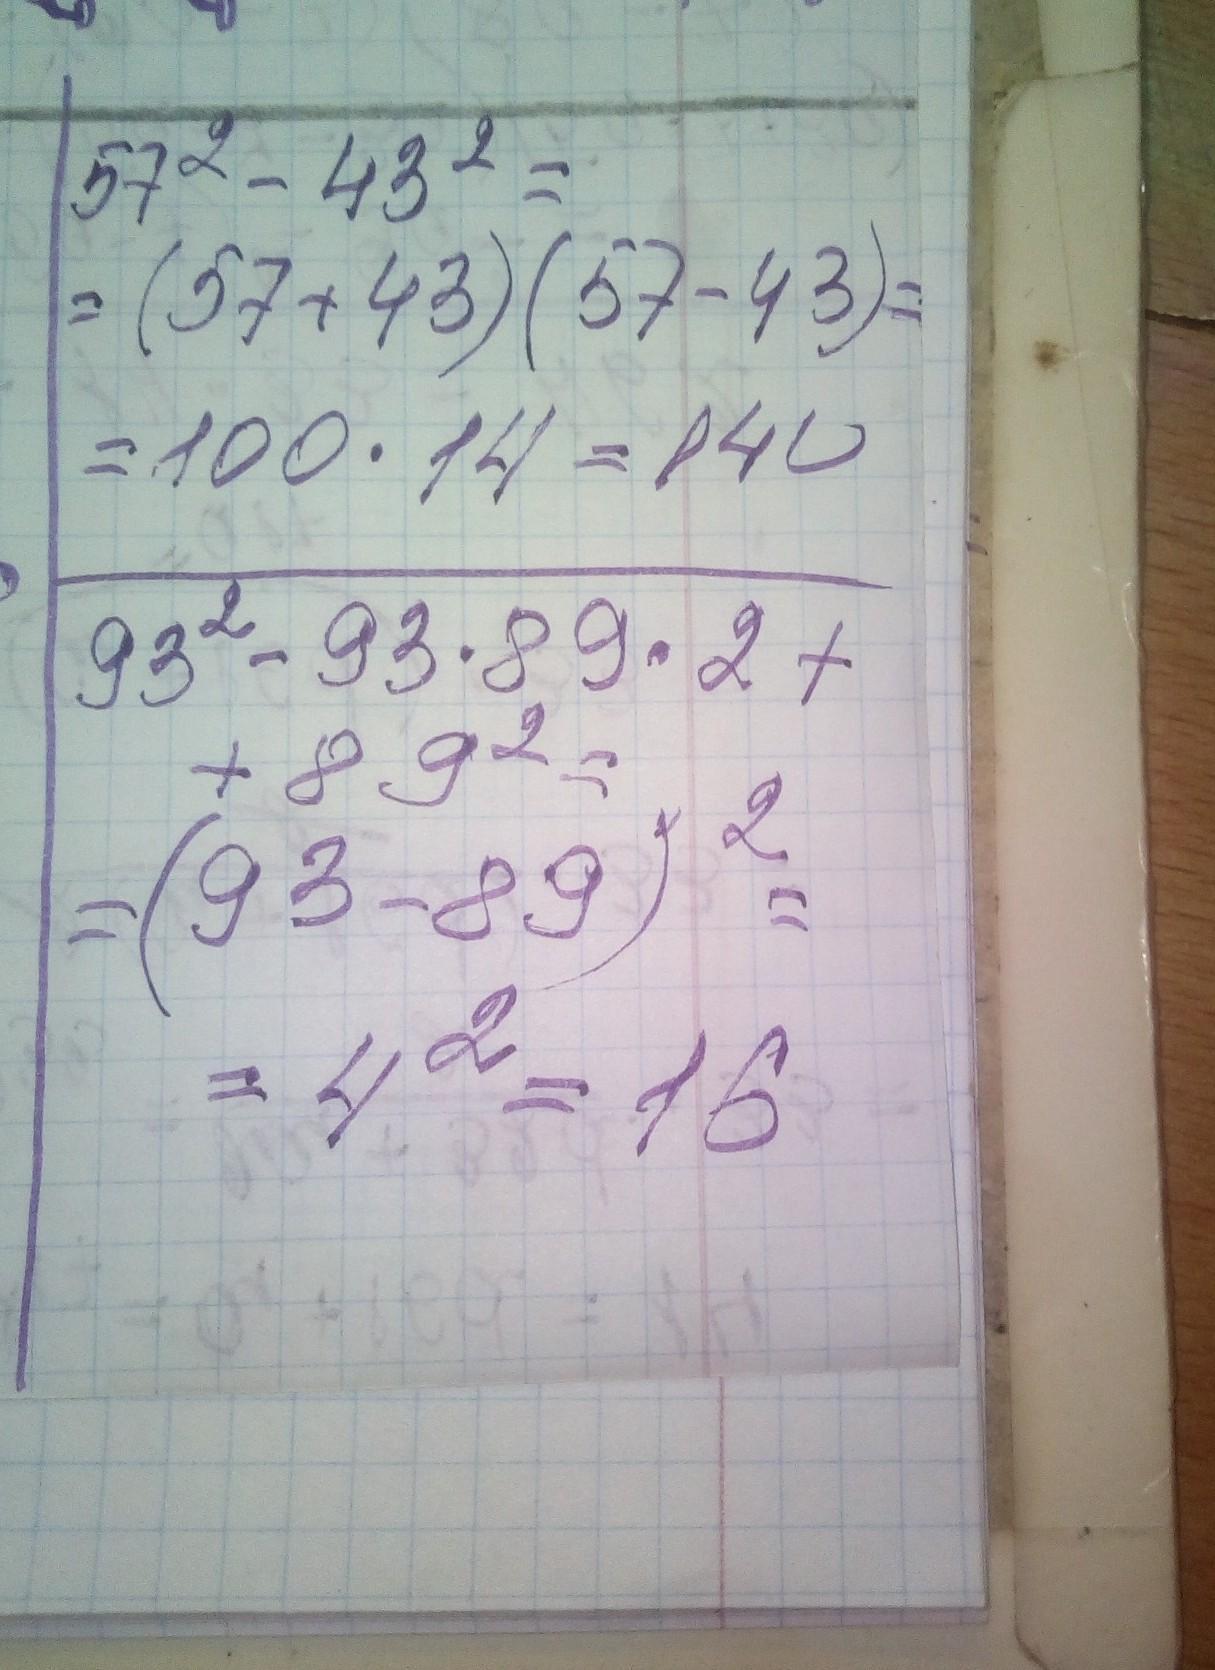 57² - 43² =
= (57 + 43)(57 - 43) =
= 100 · 14 = 140
93² - 93 · 89 · 2 +
+ 89² =
= (93 - 89)² =
= 4² = 16